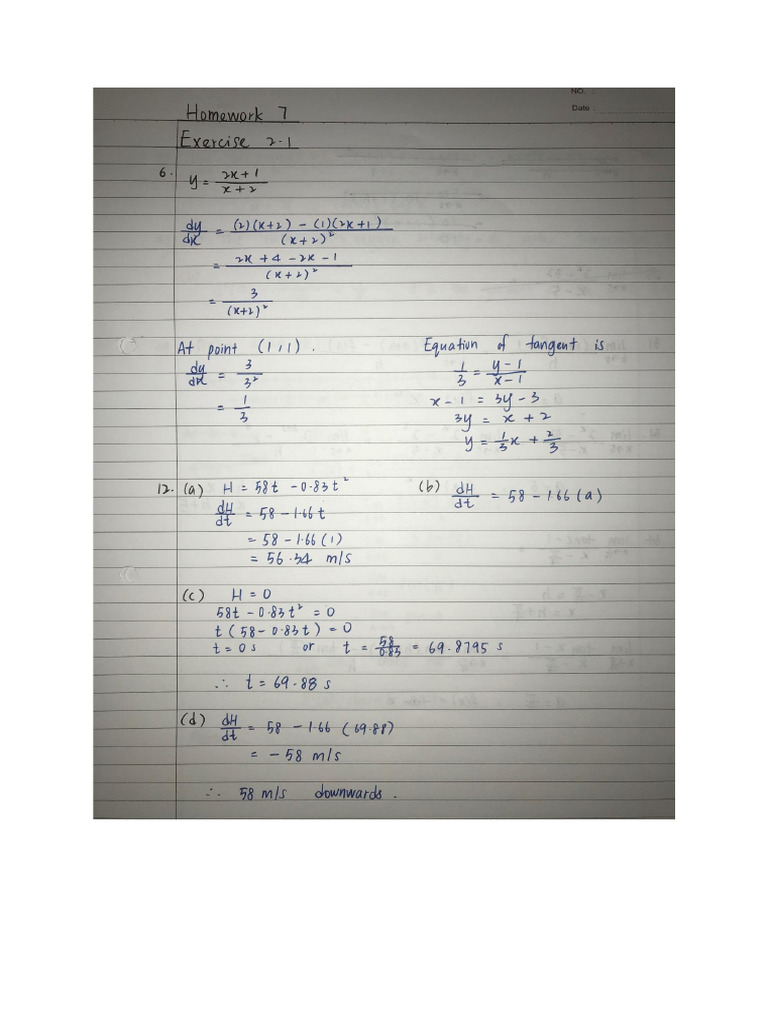 NO. :
Date :
Homework 7
Exercise 2.1
6. y = (2x+1)/(x+2)
dy/dx = ((2)(x+2) - (1)(2x+1))/(x+2)²
= (2x+4-2x-1)/(x+2)²
= 3/(x+2)²
At point (1,1).
dy/dx = 3/3²
= 1/3
Equation of tangent is
1/3 = (y-1)/(x-1)
x-1 = 3y-3
3y = x+2
y = 1/3 x + 2/3
12. (a) H = 58t - 0.83t²
dH/dt = 58 - 1.66t
= 58 - 1.66(1)
= 56.34 m/s
(b) dH/dt = 58 - 1.66(a)
(c) H = 0
58t - 0.83t² = 0
t(58 - 0.83t) = 0
t = 0 s or t = 58/0.83 = 69.8795 s
∴ t = 69.88 s
(d) dH/dt = 58 - 1.66(69.88)
= -58 m/s
∴ 58 m/s downwards.